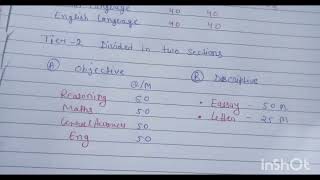 Language 40 40
English Language 40 40
Tier-2 Divided in two sections
A Objective B Descriptive
Q/M
Reasoning 50 • Eassay - 50 M
Maths 50 • Letter - 25 M
50
Eng 50
InShot